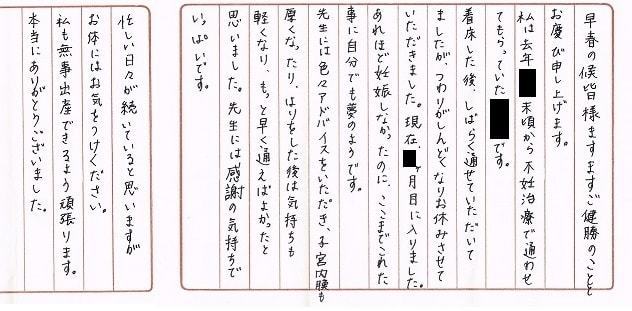 早春の候皆様ますますご健勝のことと
お慶び申し上げます。
私は去年 末頃から不妊治療で通わせ
てもらっていた です。
着床した後、しばらく通せていただいて
ましたが、つわりがしんどくなりお休みさせて
いただきました。現在、 ヶ月目に入りました。
あれほど妊娠しなかったのに、ここまでこれた
事に自分でも夢のようです。
先生には色々アドバイスをいただき、子宮内膜も
厚くなったり、はりをした後は気持ちも
軽くなり、もっと早く通えばよかったと
思いました。先生には感謝の気持ちで
いっぱいです。
忙しい日々が続いていると思いますが
お体にはお気をつけください。
私も無事出産できるよう頑張ります。
本当にありがとうございました。